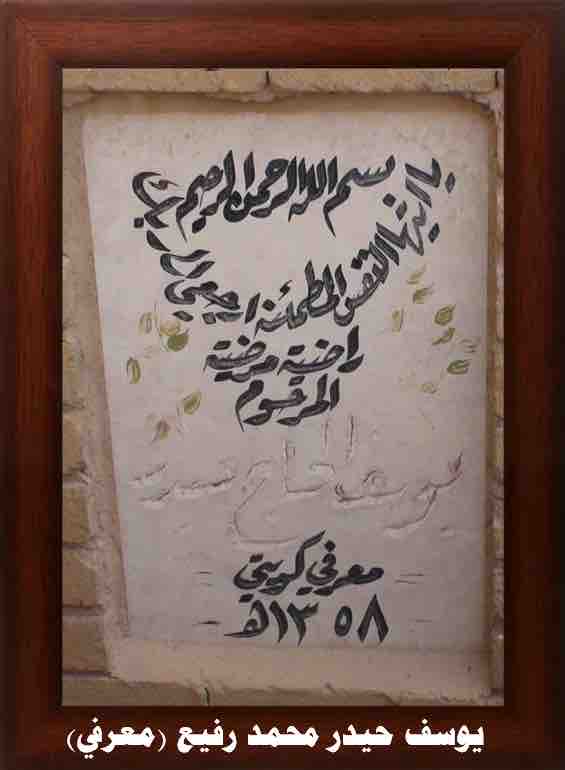 بسم الله الرحمن الرحيم
يا ايتها النفس المطمئنة ارجعي الى ربك
راضية مرضية
المرحوم
يوسف الحاج
معرفي كويتي
١٣٥٨هـ
يوسف حيدر محمد رفيع (معرفي)